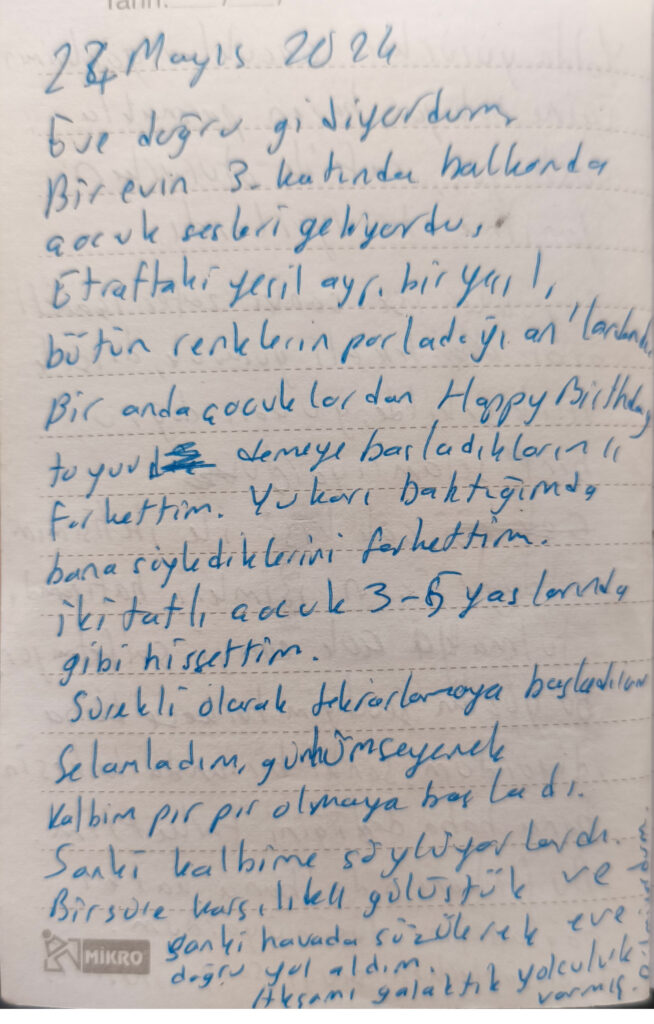 Tarih:
24 Mayıs 2024
Eve doğru gidiyordum,
Bir evin 3. katında balkonda
çocuk sesleri geliyordu,
Etraftaki yeşil ayrı bir yeşil,
bütün renklerin parladığı an'lardandı.
Bir anda çocuklardan Happy Birthday
to you demeye başladıklarını
farkettim. Yukarı baktığımda
bana söylediklerini farkettim.
iki tatlı çocuk 3-5 yaşlarında
gibi hissettim.
Sürekli olarak tekrarlamaya başladılar
Selamladım, gülümseyerek
Kalbim pır pır olmaya başladı.
Sanki kalbime söylüyorlardı.
Bir süre karşılıklı gülüştük ve
sanki havada süzülerek eve
doğru yol aldım.
Akşamı galaktik yolculuk
varmış.
MİKRO